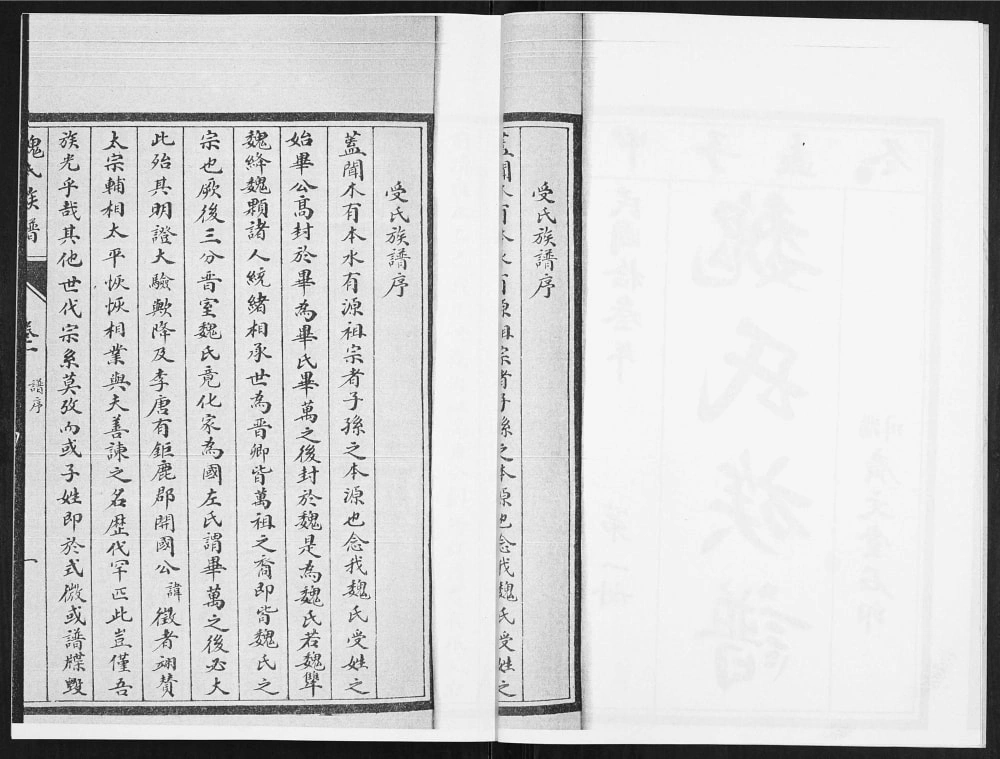 受氏族譜序
蓋聞木有本水有源祖宗者子孫之本源也念我魏氏受姓之
受氏族譜序
蓋聞木有本水有源祖宗者子孫之本源也念我魏氏受姓之
始畢公高封於畢為畢氏畢萬之後封於魏是為魏氏若魏犨
魏絳魏顆諸人統緒相承世為晋卿皆萬祖之裔即皆魏氏之
宗也厥後三分晋室魏氏竟化家為國左氏謂畢萬之後必大
此殆其明證大驗歟降及李唐有鉅鹿郡開國公諱徵者翊贊
太宗輔相太平恢恢相業與夫善諫之名歷代罕匹此豈僅吾
族光乎哉其他世代宗系莫攷而或子姓即於式微或譜牒毀
魏氏族譜 卷一 譜序 一